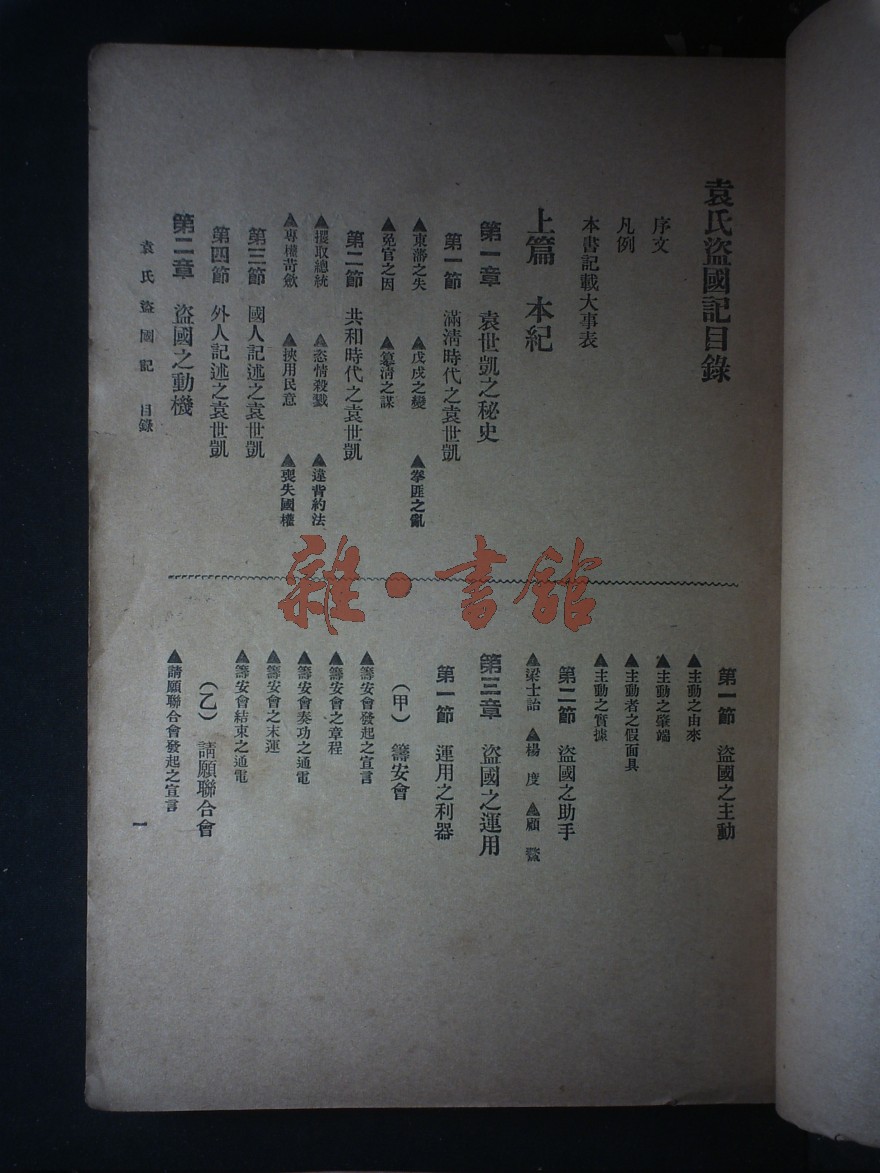 袁氏盜國記目錄
序文
凡例
本書記載大事表
上篇 本紀
第一章 袁世凱之秘史
第一節 滿清時代之袁世凱
▲東藩之失 ▲戊戌之變 ▲拳匪之亂
▲免官之因 ▲篡清之謀
第二節 共和時代之袁世凱
▲攝取總統 ▲恣情殺戮 ▲違背約法
▲專權苛斂 ▲挾用民意 ▲喪失國權
第三節 國人記述之袁世凱
第四節 外人記述之袁世凱
第二章 盜國之動機
第一節 盜國之主動
▲主動之由來
▲主動之肇端
▲主動者之假面具
▲主動之實據
第二節 盜國之助手
▲梁士詒 ▲楊 度 ▲顧 鰲
第三章 盜國之運用
第一節 運用之利器
(甲) 籌安會
▲籌安會發起之宣言
▲籌安會之章程
▲籌安會奏功之通電
▲籌安會之末運
▲籌安會結束之通電
(乙) 請願聯合會
▲請願聯合會發起之宣言
袁氏盜國記 目錄
一
雜·書館